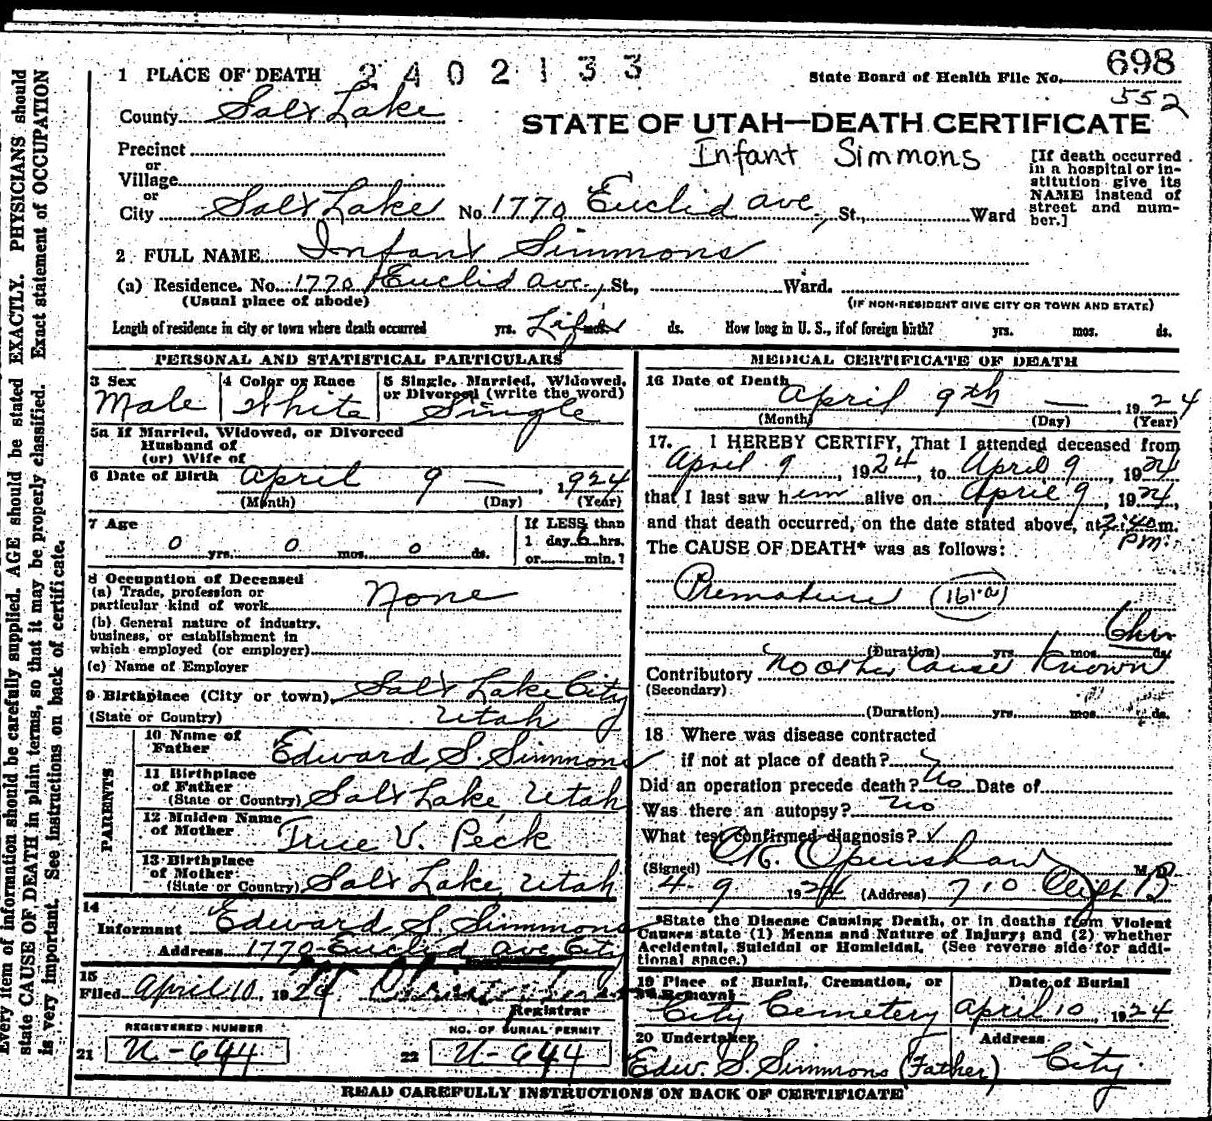 2402133
1 PLACE OF DEATH
State Board of Health File No. 698
552
County Salt Lake
STATE OF UTAH—DEATH CERTIFICATE
Infant Simmons
Precinct
or
Village
or
City Salt Lake No. 1770 Euclid ave, St., Ward
[If death occurred in a hospital or in-
stitution give its
NAME instead of
street and num-
ber.]
2 FULL NAME Infant Simmons
(a) Residence. No. 1770 Euclid ave., St., Ward.
(Usual place of abode)
(IF NON-RESIDENT GIVE CITY OR TOWN AND STATE)
Length of residence in city or town where death occurred yrs. Life mos. ds. How long in U. S., if of foreign birth? yrs. mos. ds.
PERSONAL AND STATISTICAL PARTICULARS
3 Sex
Male
4 Color or Race
White
5 Single, Married, Widowed,
or Divorced (write the word)
Single
5a If Married, Widowed, or Divorced
Husband of
(or) Wife of
6 Date of Birth April 9 — 1924
(Month) (Day) (Year)
7 Age
0 yrs. 0 mos. 0 ds.
If LESS than
1 day 6 hrs.
or min. ?
8 Occupation of Deceased
(a) Trade, profession or
particular kind of work None
(b) General nature of industry,
business, or establishment in
which employed (or employer)
(c) Name of Employer
9 Birthplace (City or town), Salt Lake City
(State or Country) Utah
PARENTS
10 Name of
Father Edward S. Simmons
11 Birthplace
of Father
(State or Country) Salt Lake, Utah
12 Maiden Name
of Mother True V. Peck
13 Birthplace
of Mother
(State or Country) Salt Lake, Utah
14
Informant Edward S. Simmons
Address 1770 Euclid ave City
15
Filed April 10, 1924
Registrar
REGISTERED NUMBER
21 U-644
NO. OF BURIAL PERMIT
22 U-644
MEDICAL CERTIFICATE OF DEATH
16 Date of Death
April 9th — 1924
(Month) (Day) (Year)
17. I HEREBY CERTIFY, That I attended deceased from
April 9, 1924, to April 9, 1924
that I last saw him alive on April 9, 1924,
and that death occurred, on the date stated above, at 2:40 m.
PM.
The CAUSE OF DEATH* was as follows:
Premature (161-a)
6hr
(Duration) yrs. mos. ds.
Contributory No other cause known
(Secondary)
(Duration) yrs. mos. ds.
18 Where was disease contracted
if not at place of death?
Did an operation precede death? No Date of
Was there an autopsy? no
What test confirmed diagnosis? ✓
(Signed) Openshaw M. D.
4-9 1924 (Address) 710 Clift B
*State the Disease Causing Death, or in deaths from Violent
Causes state (1) Means and Nature of Injury; and (2) whether
Accidental, Suicidal or Homicidal. (See reverse side for addi-
tional space.)
19 Place of Burial, Cremation, or
Removal
City Cemetery
Date of Burial
April 10, 1924
20 Undertaker
Edw. S. Simmons (Father)
Address
City
READ CAREFULLY INSTRUCTIONS ON BACK OF CERTIFICATE
Every item of information should be carefully supplied. AGE should be stated EXACTLY. PHYSICIANS should
state CAUSE OF DEATH in plain terms, so that it may be properly classified. Exact statement of OCCUPATION
is very important. See instructions on back of certificate.